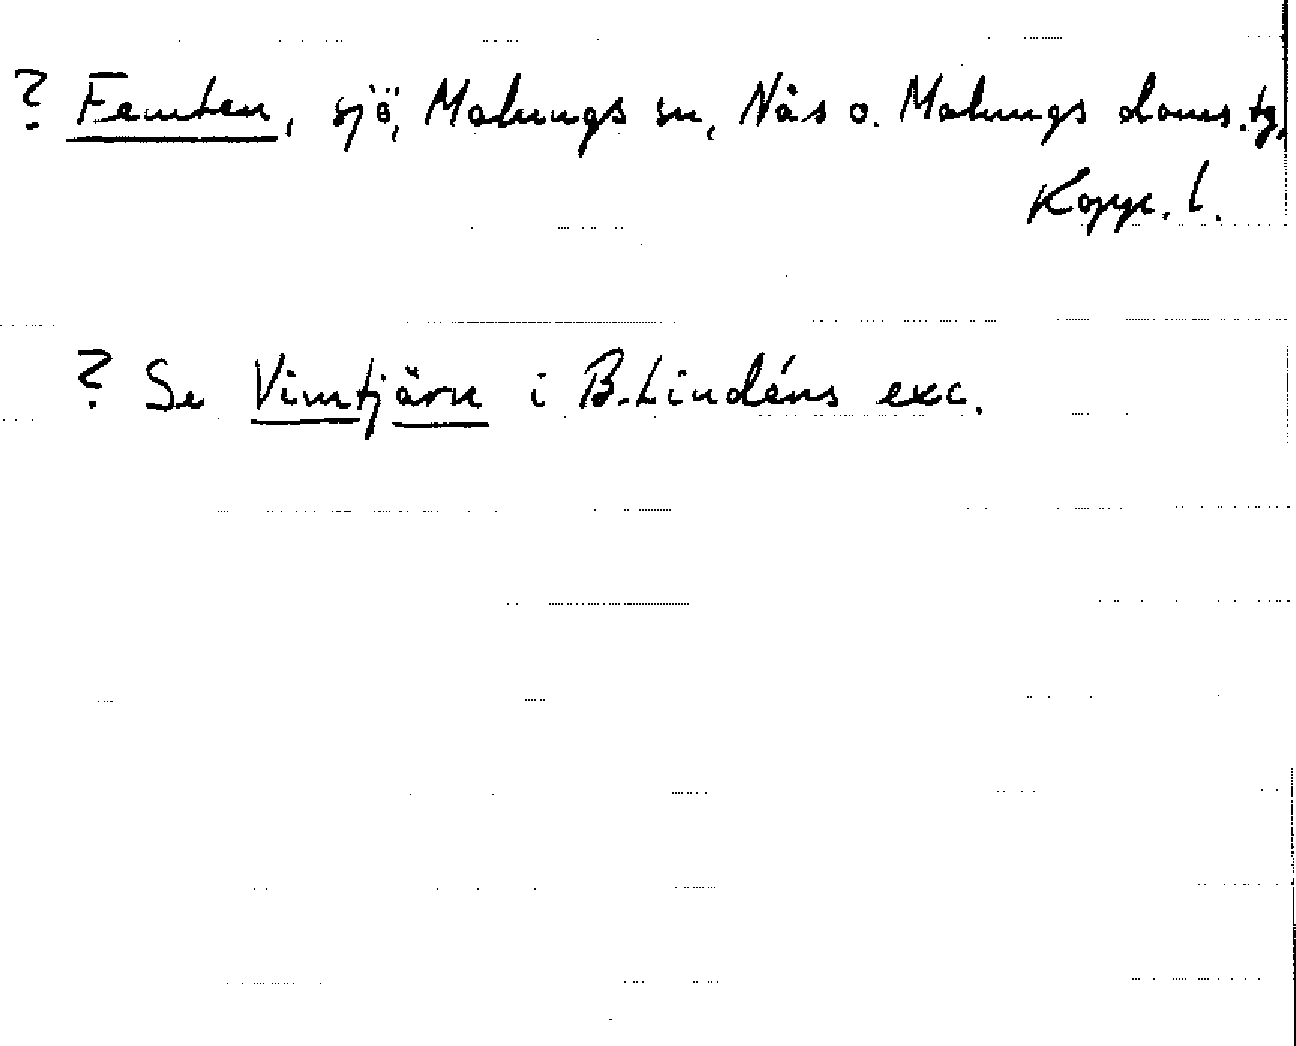 ? Femten, sjö, Malungs sn, Nås o. Malungs doms.tg,
Kopp. l.
? Se Vimtjärn i B. Lindéns exc.